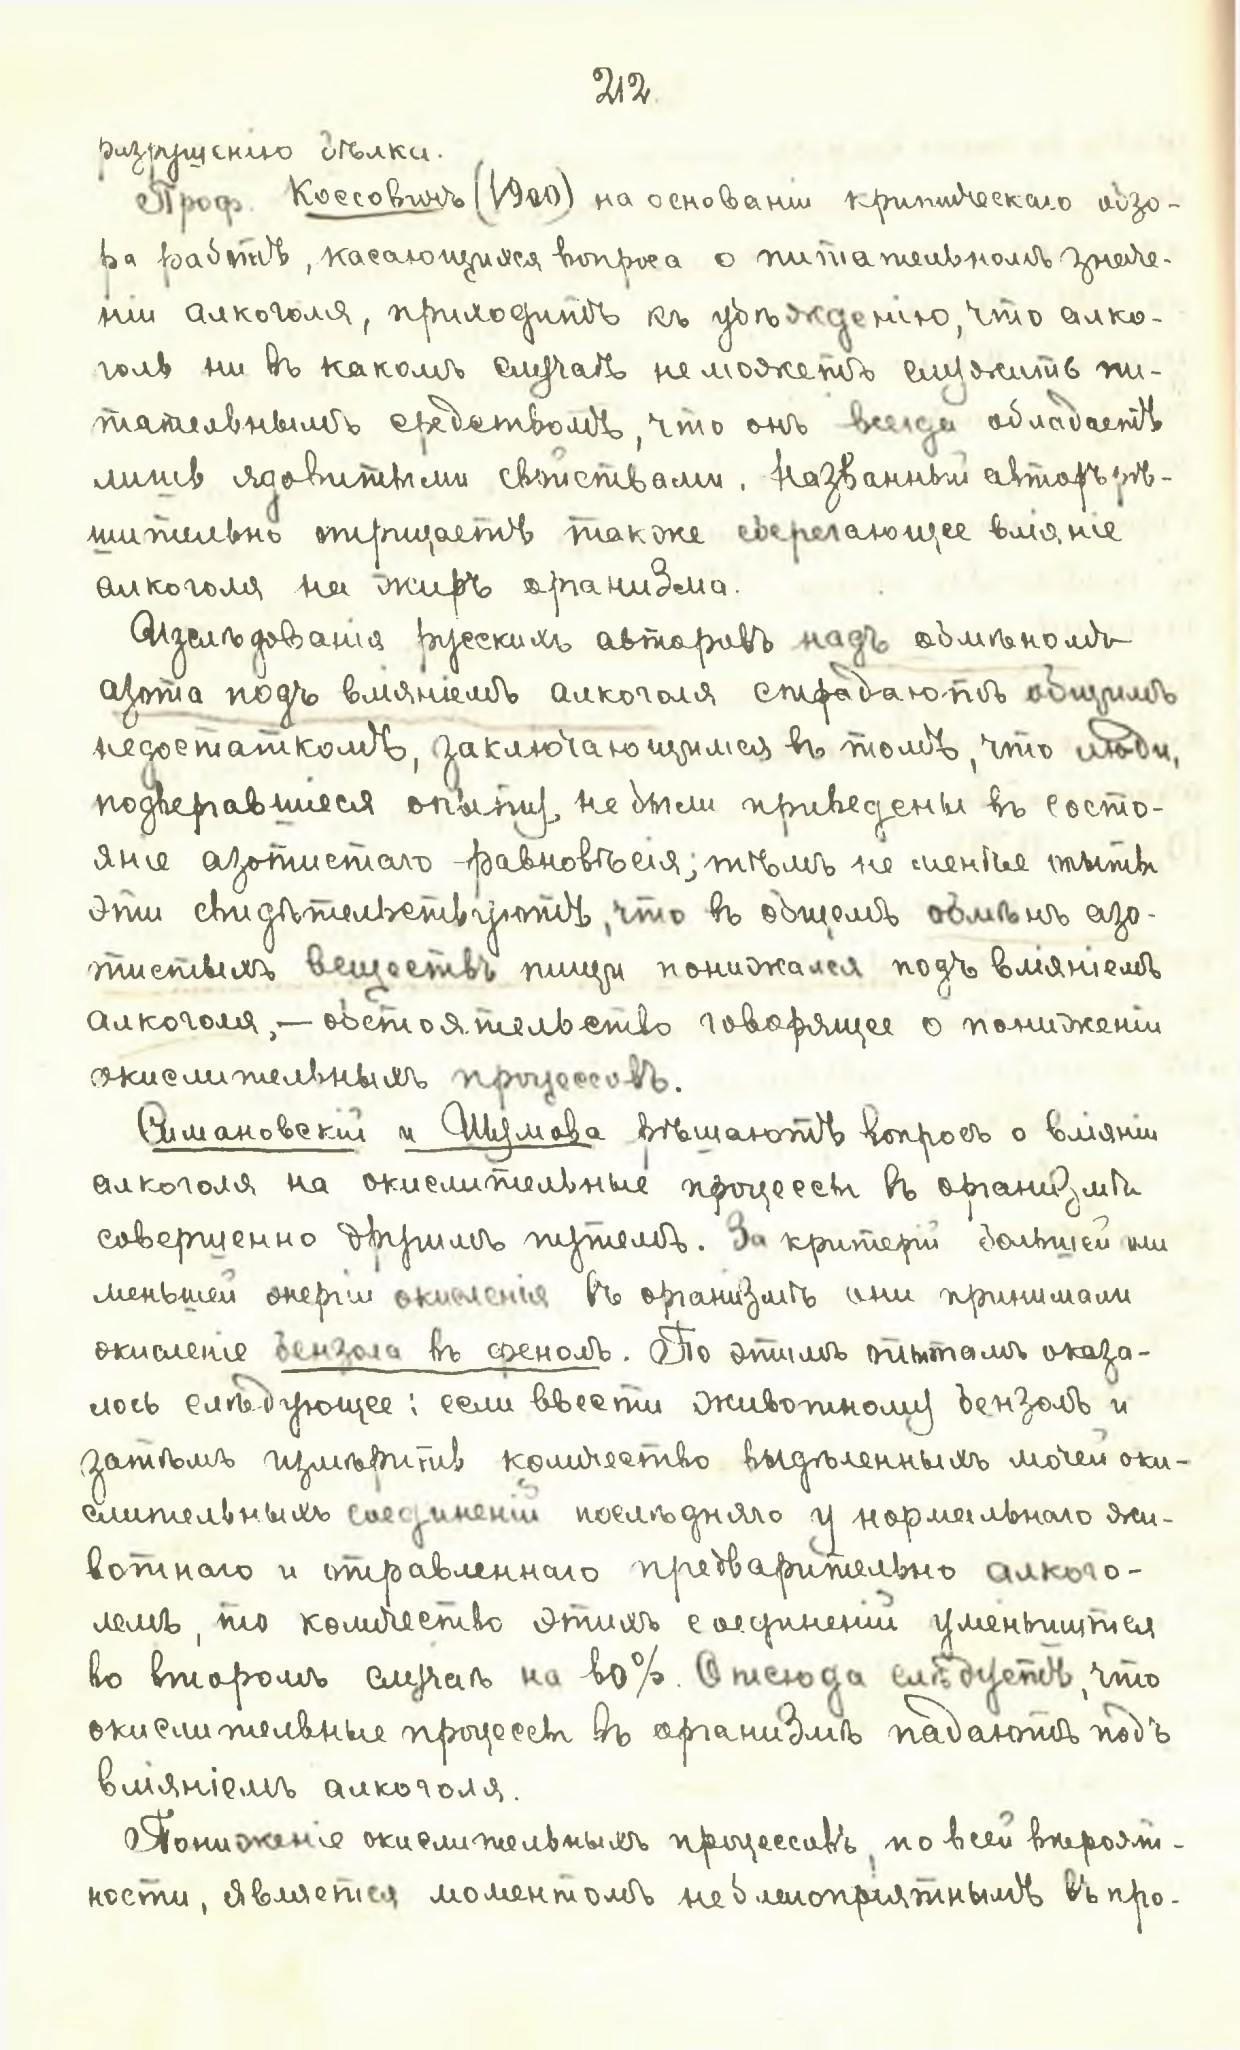 212
разрушенію бѣлка.
Проф. Коссовичъ (1900) на основаніи критическаго обзо-
ра работъ, касающихся вопроса о питательномъ значе-
ніи алкоголя, приходитъ къ убѣжденію, что алко-
голь ни въ какомъ случаѣ не можетъ служить пи-
тательнымъ средствомъ, что онъ всегда обладаетъ
лишь ядовитыми свойствами. Названный авторъ рѣ-
шительно отрицаетъ также сберегающее вліяніе
алкоголя на жиръ организма.
Изслѣдованія русскихъ авторовъ надъ обмѣномъ
азота подъ вліяніемъ алкоголя страдаютъ общимъ
недостаткомъ, заключающимся въ томъ, что люди,
подвергавшіеся опыту, не были приведены въ состо-
яніе азотистаго равновѣсія; тѣмъ не менѣе опыты
эти свидѣтельствуютъ, что въ общемъ обмѣнъ азо-
тистыхъ веществъ пищи понижался подъ вліяніемъ
алкоголя, — обстоятельство говорящее о пониженіи
окислительныхъ процессовъ.
Симановскій и Шумова рѣшаютъ вопросъ о вліяніи
алкоголя на окислительные процессы въ организмѣ
совершенно другимъ путемъ. За критерій большей или
меньшей энергіи окисленія въ организмѣ они принимали
окисленіе бензола въ фенолъ. По этимъ опытамъ оказа-
лось слѣдующее: если ввести животному бензолъ и
затѣмъ измѣрить количество выдѣленныхъ мочей оки-
слительныхъ соединеній послѣдняго у нормальнаго жи-
вотнаго и отравленнаго предварительно алкого-
лемъ, то количество этихъ соединеній уменьшится
во второмъ случаѣ на 60%. Отсюда слѣдуетъ, что
окислительные процессы въ организмѣ падаютъ подъ
вліяніемъ алкоголя.
Пониженіе окислительныхъ процессовъ, по всей вѣроят-
ности, является моментомъ неблагопріятнымъ въ про-